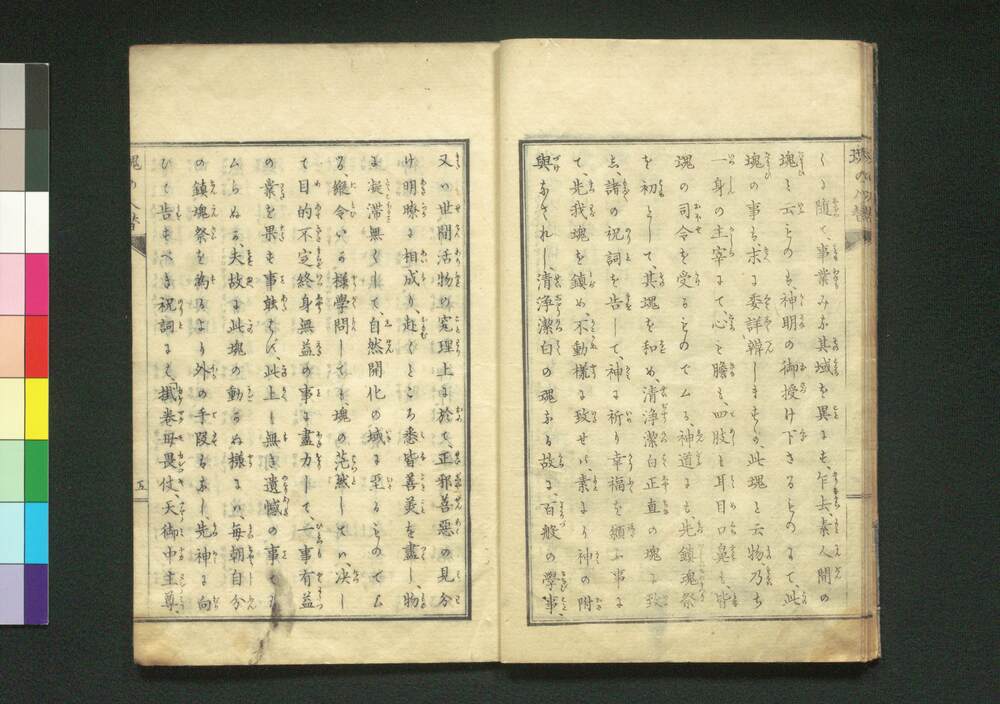 くに随て、事業みな其域を異にも、乍去、素人間の
魂と云ものも神明の御授け下さるものにて、此
魂の事ら求に委詳辨しますが、此魂と云物乃ち
一身の主宰にて、心も膽も、四肢も耳目口鼻も、皆
魂の司令を受るものでムる、神道にも、先鎮魂祭
を初として其魂を和め清浄潔白正直の魂に致
し、諸の祝詞を告して、神に祈り幸福を願ふ事に
て、先我魂を鎮め、不動様に致せバ、素より神の附
與なされし、清浄潔白の魂なる故に、百般の學事、
又ハ世間活物の究理上に於て、正邪善惡の見分
け明瞭に相成り、赴くところ悉皆善美を盡し、物
に凝滞無くして、自然開化の域に至るものでム
る、縦令いか様學問しても、魂の茫然してハ、决し
て目的不定終身無益の事に盡力して、一事有益
の業を果も事能はず、此上も無き遺憾の事でも
ムらぬか、夫故に此魂の動かぬ様に、毎朝自分
の鎮魂祭を為るより外の手段もなし先神に向
ひて告すべき祝詞にも、掛巻母畏伎、天御中主尊、
五